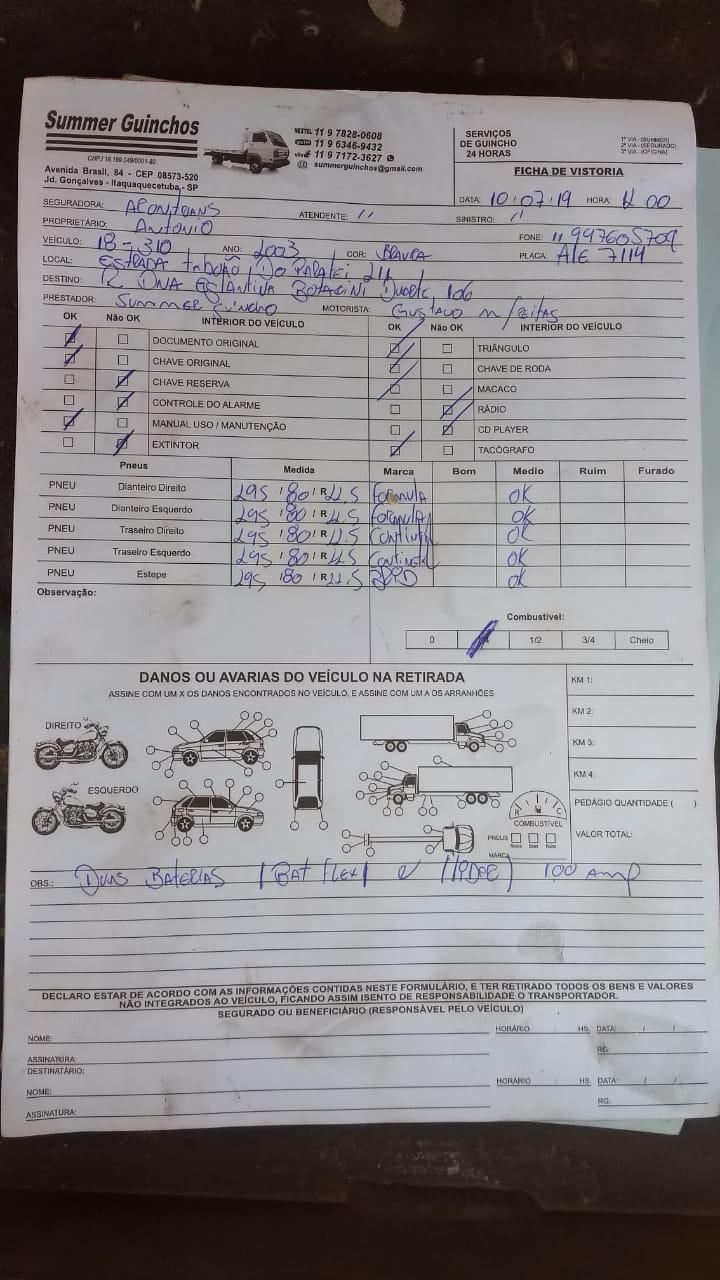 Summer Guinchos
CNPJ 18.199.049/0001-80
Avenida Brasil, 84 - CEP 08573-520
Jd. Gonçalves - Itaquaquecetuba - SP
NEXTEL 11 9 7828-0608
11 9 6346-9432
vivo 11 9 7172-3627
@ summerguinchos@gmail.com
SERVIÇOS
DE GUINCHO
24 HORAS
1ª VIA - (SUMMER)
2ª VIA - (SEGURADO)
3ª VIA - (OFICINA)
FICHA DE VISTORIA
DATA: 10/07/19 HORA:
SEGURADORA: ATENDENTE: // SINISTRO: //
PROPRIETÁRIO: ANTONIO FONE: 11 997605709
VEÍCULO: 18-310 ANO: 2003 COR: BRANCA PLACA:
LOCAL: ESTRADA
DESTINO: R. DNA 106
PRESTADOR: SUMMER GUINCHO MOTORISTA: GUSTAVO M/FREITAS
OK Não OK INTERIOR DO VEÍCULO OK Não OK INTERIOR DO VEÍCULO
DOCUMENTO ORIGINAL TRIÂNGULO
CHAVE ORIGINAL CHAVE DE RODA
CHAVE RESERVA MACACO
CONTROLE DO ALARME RÁDIO
MANUAL USO / MANUTENÇÃO CD PLAYER
EXTINTOR TACÓGRAFO
Pneus Medida Marca Bom Medio Ruim Furado
PNEU Dianteiro Direito 295 / 80 / R 22.5 FORMULA OK
PNEU Dianteiro Esquerdo 295 / 80 / R 22.5 FORMULA OK
PNEU Traseiro Direito 295 / 80 / R 22.5 OK
PNEU Traseiro Esquerdo 295 / 80 / R 22.5 OK
PNEU Estepe 295 / 80 / R 22.5 OK
Observação:
Combustível:
0 1/2 3/4 Cheio
DANOS OU AVARIAS DO VEÍCULO NA RETIRADA
ASSINE COM UM X OS DANOS ENCONTRADOS NO VEÍCULO, E ASSINE COM UM A OS ARRANHÕES
KM 1:
KM 2:
KM 3:
KM 4:
PEDÁGIO QUANTIDADE ( )
VALOR TOTAL:
DIREITO
ESQUERDO
COMBUSTÍVEL
PNEUS
MARCA
OBS.: DUAS BATERIAS (BAT FLEX) e 100 AMP
DECLARO ESTAR DE ACORDO COM AS INFORMAÇÕES CONTIDAS NESTE FORMULÁRIO, E TER RETIRADO TODOS OS BENS E VALORES
NÃO INTEGRADOS AO VEÍCULO, FICANDO ASSIM ISENTO DE RESPONSABILIDADE O TRANSPORTADOR.
SEGURADO OU BENEFICIÁRIO (RESPONSÁVEL PELO VEÍCULO)
NOME: HORÁRIO HS. DATA: / /
ASSINATURA: RG:
DESTINATÁRIO:
NOME: HORÁRIO HS. DATA: / /
ASSINATURA: RG: